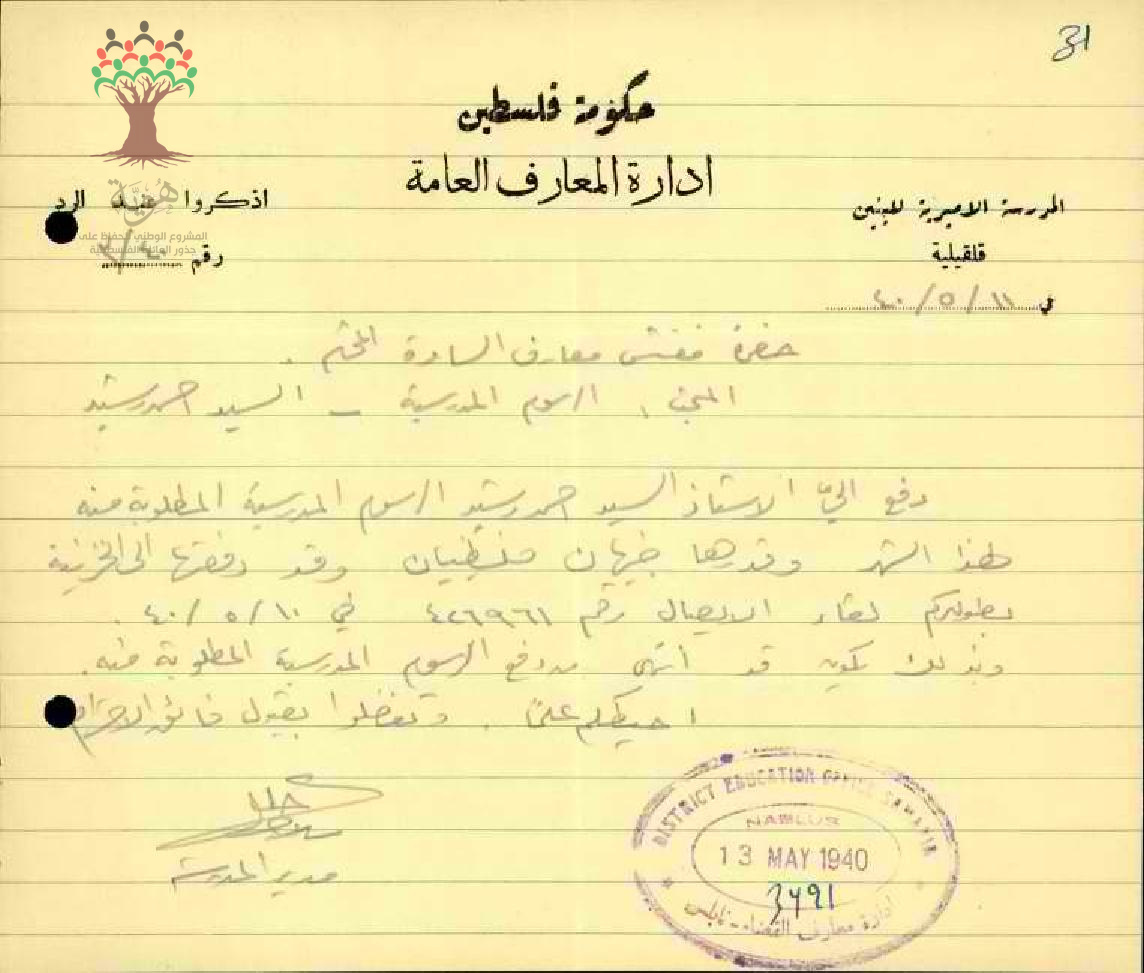 31
حكومة فلسطين
ادارة المعارف العامة
المدرسة الاميرية للبنين
قلقيلية
في ١١/٥/٤٠
اذكروا عند الرد
رقم
هُويَّة
المشروع الوطني للحفاظ على
جذور العائلة الفلسطينية
حضرة مفتش معارف السامرة المحترم .
المبحث : الرسوم المدرسية – السيد احمد رشيد
دفع اليّ الاستاذ السيد احمد رشيد الرسوم المدرسية المطلوبة منه
لهذا الشهر وقدرها جنيهان فلسطينيان وقد دفعتها الى الخزينة
بطولكرم لقاء الايصال رقم ٤٢٦٩٦١ في ١٠/٥/٤٠ .
وبذلك يكون قد انتهى من دفع الرسوم المدرسية المطلوبة منه .
احيطكم علماً . وتفضلوا بقبول فائق الاحترام
مدير المدرسة
DISTRICT EDUCATION OFFICE SAMARIA
NABLUS
13 MAY 1940
3491
ادارة معارف القضاء - نابلس